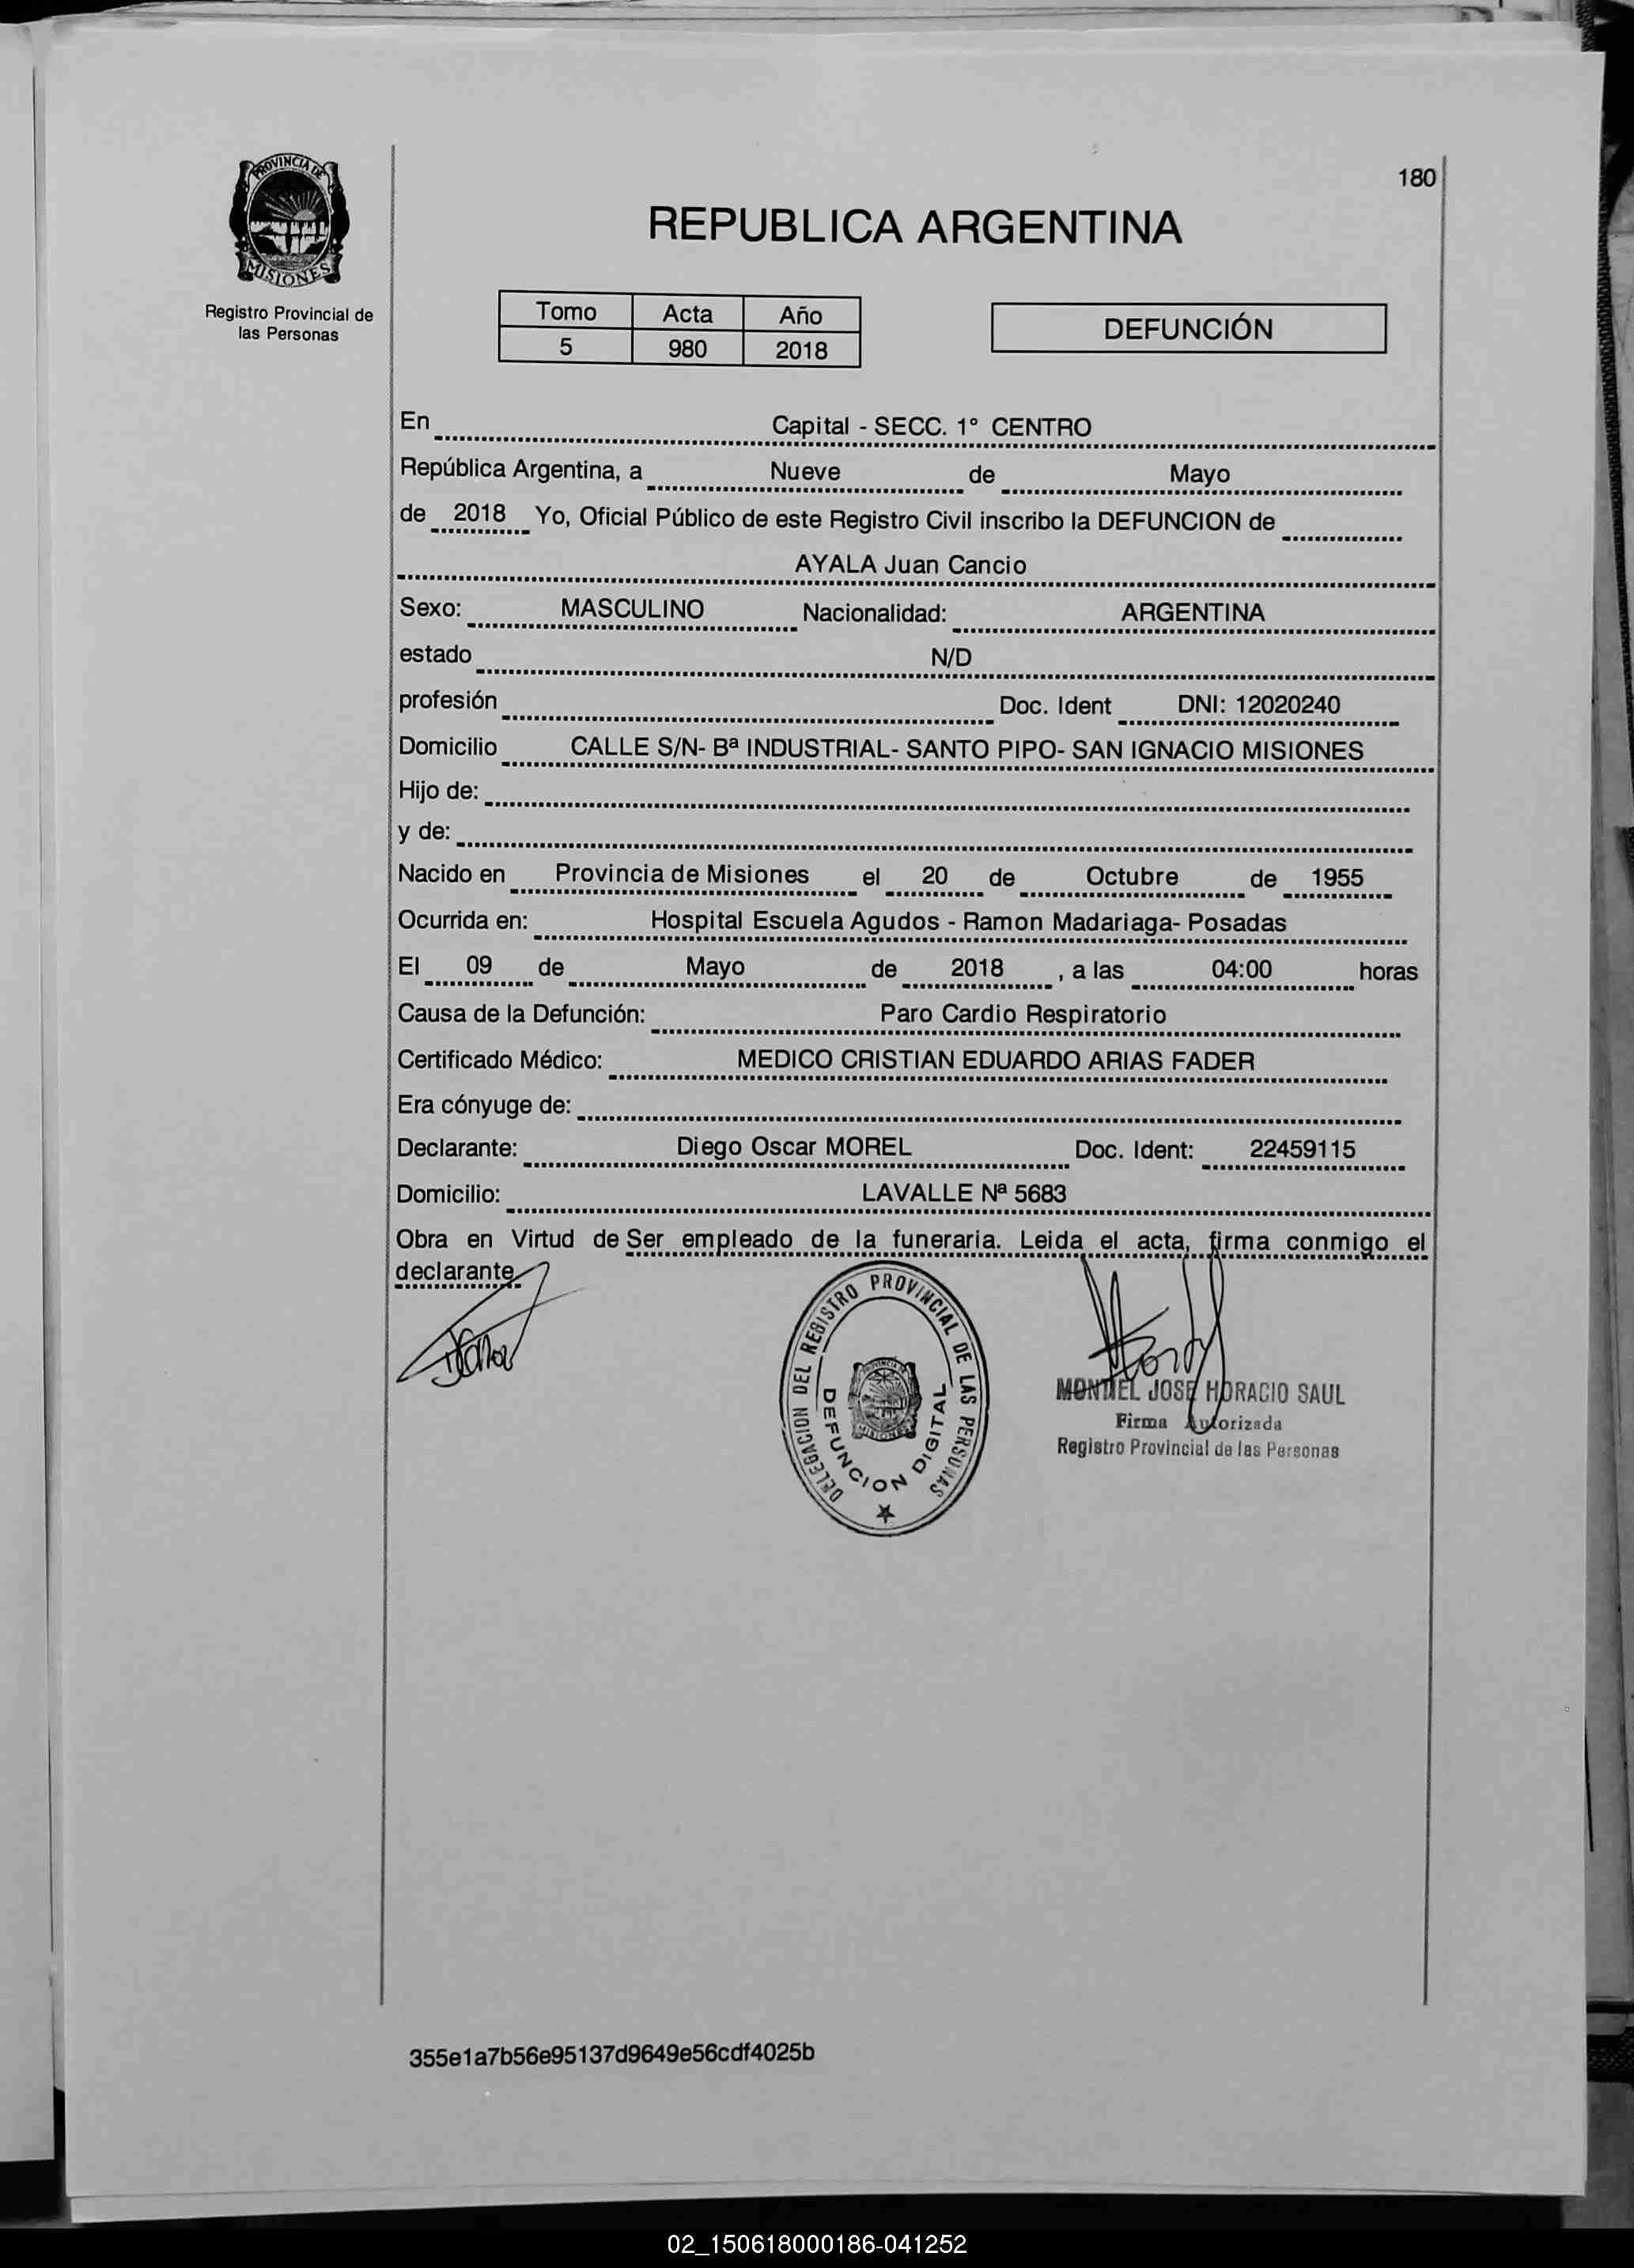 180
PROVINCIA DE
MISIONES
Registro Provincial de
las Personas
REPUBLICA ARGENTINA
Tomo Acta Año
5 980 2018
DEFUNCIÓN
En Capital - SECC. 1° CENTRO
República Argentina, a Nueve de Mayo
de 2018 Yo, Oficial Público de este Registro Civil inscribo la DEFUNCION de
AYALA Juan Cancio
Sexo: MASCULINO Nacionalidad: ARGENTINA
estado N/D
profesión Doc. Ident DNI: 12020240
Domicilio CALLE S/N- Bª INDUSTRIAL- SANTO PIPO- SAN IGNACIO MISIONES
Hijo de:
y de:
Nacido en Provincia de Misiones el 20 de Octubre de 1955
Ocurrida en: Hospital Escuela Agudos - Ramon Madariaga- Posadas
El 09 de Mayo de 2018 , a las 04:00 horas
Causa de la Defunción: Paro Cardio Respiratorio
Certificado Médico: MEDICO CRISTIAN EDUARDO ARIAS FADER
Era cónyuge de:
Declarante: Diego Oscar MOREL Doc. Ident: 22459115
Domicilio: LAVALLE Nª 5683
Obra en Virtud de Ser empleado de la funeraria. Leida el acta, firma conmigo el
declarante.
DELEGACION DEL REGISTRO PROVINCIAL DE LAS PERSONAS
DEFUNCION DIGITAL
PROVINCIA DE
MISIONES
MONTIEL JOSE HORACIO SAUL
Firma Autorizada
Registro Provincial de las Personas
355e1a7b56e95137d9649e56cdf4025b
02_150618000186-041252